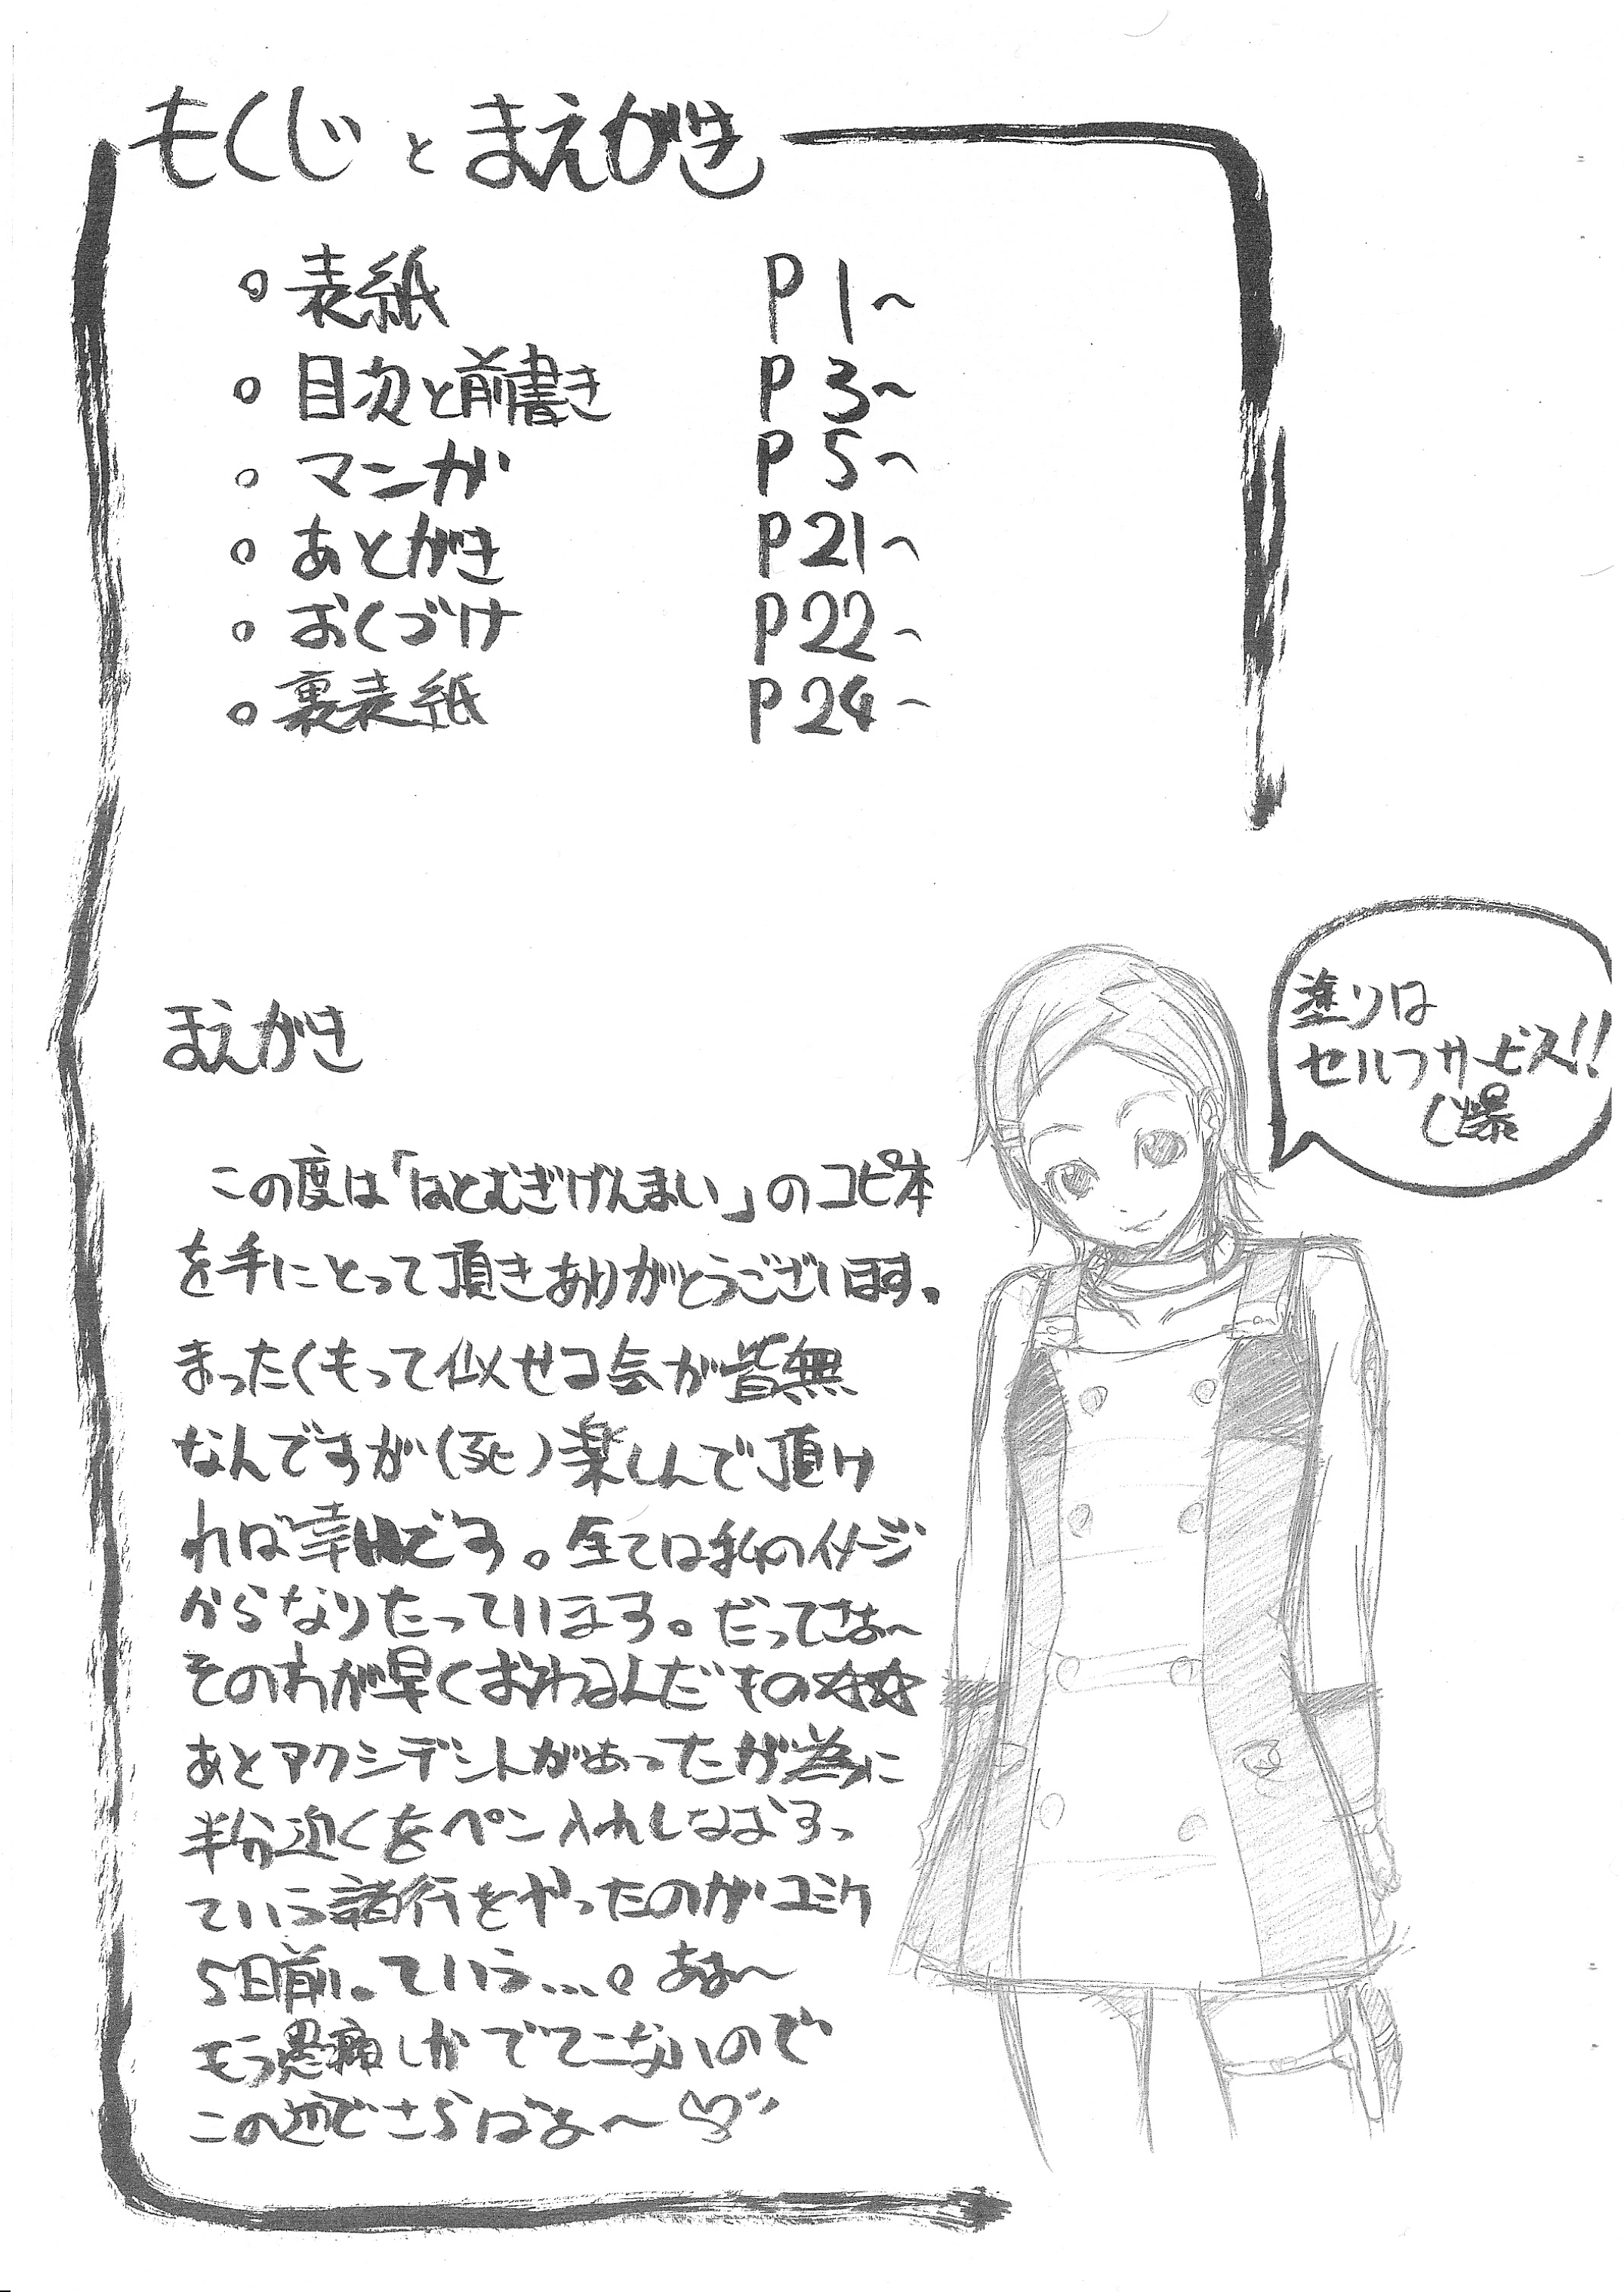 もくじとまえがき
。表紙 P1～
。目次と前書き P3～
。マンガ P5～
。あとがき P21～
。おくづけ P22～
。裏表紙 P24～
塗りは
セルフサービス!!
(爆
まえがき
この度は「はとむぎげんまい」のコピ本
を手にとって頂きありがとうございます。
まったくもって似せコ会が皆無
なんですが(死)楽しんで頂け
れば幸いです。全ては私のイメージ
からなりたっています。だってさぁ～
そのわが早くおわるんだもの☆☆
あとアクシデントがあったが為に
半分近くをペン入れしなおすっ
ていう諸行をやったのがコミケ
5日前。ていう…。あぁ～
もう愚痴しかでてこないので
この辺でさらばぁ～